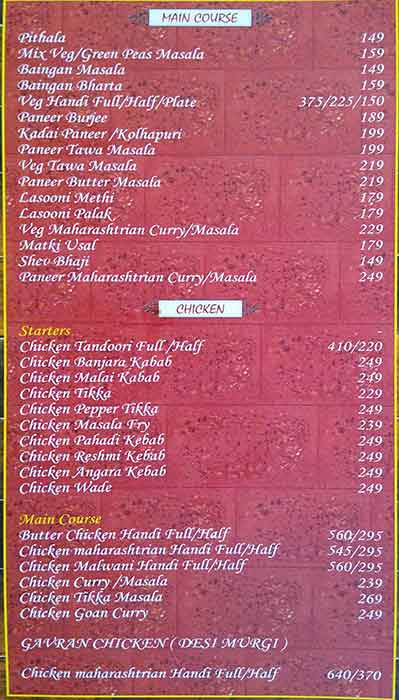 MAIN COURSE
Pithala 149
Mix Veg/Green Peas Masala 159
Baingan Masala 149
Baingan Bharta 159
Veg Handi Full/Half/Plate 375/225/150
Paneer Burjee 189
Kadai Paneer /Kolhapuri 199
Paneer Tawa Masala 199
Veg Tawa Masala 219
Paneer Butter Masala 219
Lasooni Methi 179
Lasooni Palak 179
Veg Maharashtrian Curry/Masala 229
Matki Usal 179
Shev Bhaji 149
Paneer Maharashtrian Curry/Masala 249
CHICKEN
Starters
Chicken Tandoori Full /Half 410/220
Chicken Banjara Kabab 249
Chicken Malai Kabab 249
Chicken Tikka 229
Chicken Pepper Tikka 249
Chicken Masala Fry 239
Chicken Pahadi Kebab 249
Chicken Reshmi Kebab 249
Chicken Angara Kebab 249
Chicken Wade 249
Main Course
Butter Chicken Handi Full/Half 560/295
Chicken maharashtrian Handi Full/Half 545/295
Chicken Malwani Handi Full/Half 560/295
Chicken Curry /Masala 239
Chicken Tikka Masala 269
Chicken Goan Curry 249
GAVRAN CHICKEN ( DESI MURGI )
Chicken maharashtrian Handi Full/Half 640/370